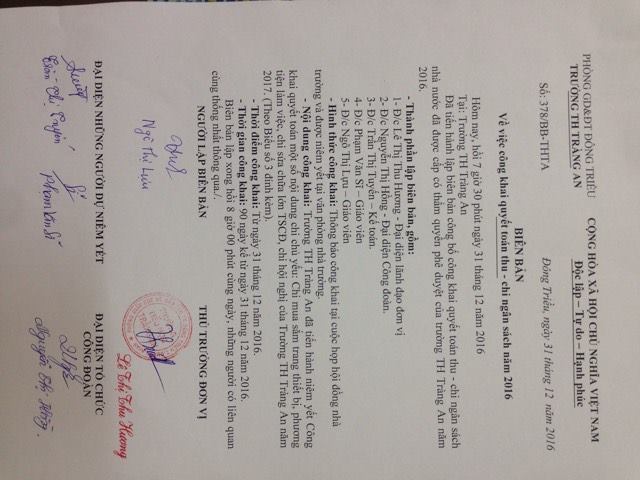 PHÒNG GD&ĐT ĐÔNG TRIỀU
TRƯỜNG TH TRÀNG AN
CỘNG HÒA XÃ HỘI CHỦ NGHĨA VIỆT NAM
Độc lập – Tự do – Hạnh phúc
Số: 378/BB-THTA
Đông Triều, ngày 31 tháng 12 năm 2016
BIÊN BẢN
Về việc công khai quyết toán thu - chi ngân sách năm 2016
Hôm nay, hồi 7 giờ 30 phút ngày 31 tháng 12 năm 2016
Tại: Trường TH Tràng An
Đã tiến hành lập biên bản công bố công khai quyết toán thu - chi ngân sách
nhà nước đã được cấp có thẩm quyền phê duyệt của trường TH Tràng An năm
2016.
- Thành phần lập biên bản, gồm:
1- Đ/c Lê Thị Thu Hương - Đại diện lãnh đạo đơn vị
2- Đ/c Nguyễn Thị Hồng - Đại diện Công đoàn.
3- Đ/c Trần Thị Tuyến – Kế toán.
4- Đ/c Phạm Văn Sĩ – Giáo viên
5- Đ/c Ngô Thị Lựu – Giáo viên
- Hình thức công khai: Thông báo công khai tại cuộc họp hội đồng nhà
trường và được niêm yết tại văn phòng nhà trường.
- Nội dung công khai: Trường TH Tràng An đã tiến hành niêm yết Công
khai quyết toán một số nội dung chi chủ yếu: Chi mua sắm trang thiết bị, phương
tiện làm việc, chi sửa chữa lớn TSCĐ, chi hội nghị của Trường TH Tràng An năm
2017. (Theo Biểu số 3 đính kèm).
- Thời điểm công khai: Từ ngày 31 tháng 12 năm 2016.
- Thời gian công khai: 90 ngày kể từ ngày 31 tháng 12 năm 2016.
Biên bản lập xong hồi 8 giờ 00 phút cùng ngày, những người có liên quan
cùng thống nhất thông qua./.
NGƯỜI LẬP BIÊN BẢN
THỦ TRƯỞNG ĐƠN VỊ
Ngô Thị Lựu
Lê Thị Thu Hương
ĐẠI DIỆN NHỮNG NGƯỜI DỰ NIÊM YẾT
ĐẠI DIỆN TỔ CHỨC
CÔNG ĐOÀN
Trần Thị Tuyến
Phạm Văn Sĩ
Nguyễn Thị Hồng